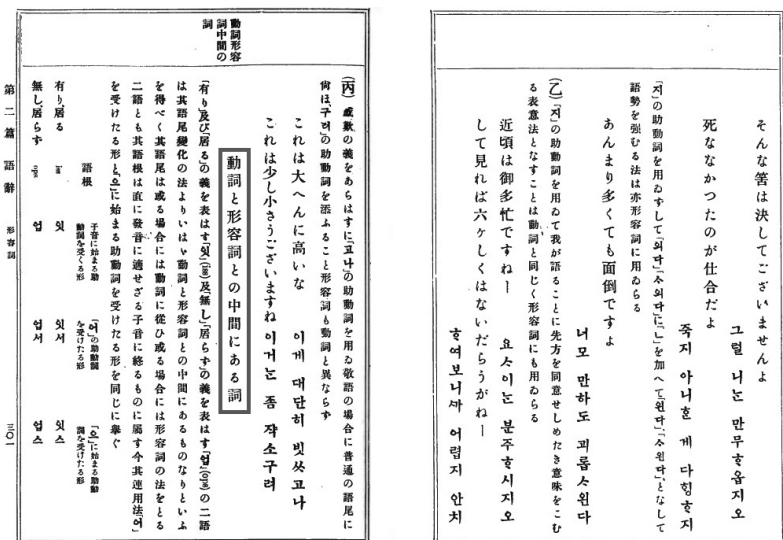 そんな筈は決してございませんよ
그럴 니ᄂᆞᆫ 만무ᄒᆞ옵지오
死ななかつたのが仕合だよ
죽지 아니ᄒᆞᆫ 게 다힝ᄒᆞ지
「지」の助動詞を用ゐずして「외다」「ᄉᆞ외다」に「ㄴ」を加へて「왼다」「ᄉᆞ왼다」となして
語勢を強むる法は亦形容詞に用ゐらる
あんまり多くても面倒ですよ
너모 만하도 괴롭ᄉᆞ왼다
(乙) 「지」の助動詞を用ゐて我が語ることに先方を同意せしめたき意味をこむ
る表意法となすことは動詞と同じく形容詞にも用ゐらる
近頃は御多忙ですねー 요ᄉᆞ이ᄂᆞᆫ 분주ᄒᆞ시지오
して見れば六ケしくはないだらうがねー
ᄒᆞ여보니ᄭᅡ 어렵지 안치
動詞形容詞中間の詞
(丙) 感歎の義をあらはすに「고나」の助動詞を用ゐ敬語の場合に普通の語尾に
尙ほ「구려」の助動詞を添ふること形容詞も動詞と異ならず
これは大へんに高いな 이게 대단히 빗ᄊᆞ고나
これは少し小さうございますね 이거ᄂᆞᆫ 좀 쟉소구려
動詞と形容詞との中間にある詞
「有り」及び「居る」の義を表はす「잇」(iss)及「無し」「居らず」の義を表はす「업」(ops)の二語
は其語尾變化の法よりいはゞ動詞と形容詞との中間にあるものなりといふ
を得べく其語尾は或る場合には動詞に從ひ或る場合には形容詞の法をとる
二語とも其語根は直に發音に適せざる子音に終るものに屬す今其連用法「어」
を受けたる形と「으」に始まる助動詞を受けたる形を同じに擧ぐ
語根 子音に始まる助動詞を受くる形 「어」の助動詞を受けたる形 「으」に始まる助動詞を受けたる形
有り、居る iss 잇 잇서 잇스
無し、居らず ops 업 업서 업스
第二篇 語辭 形容詞 三〇一